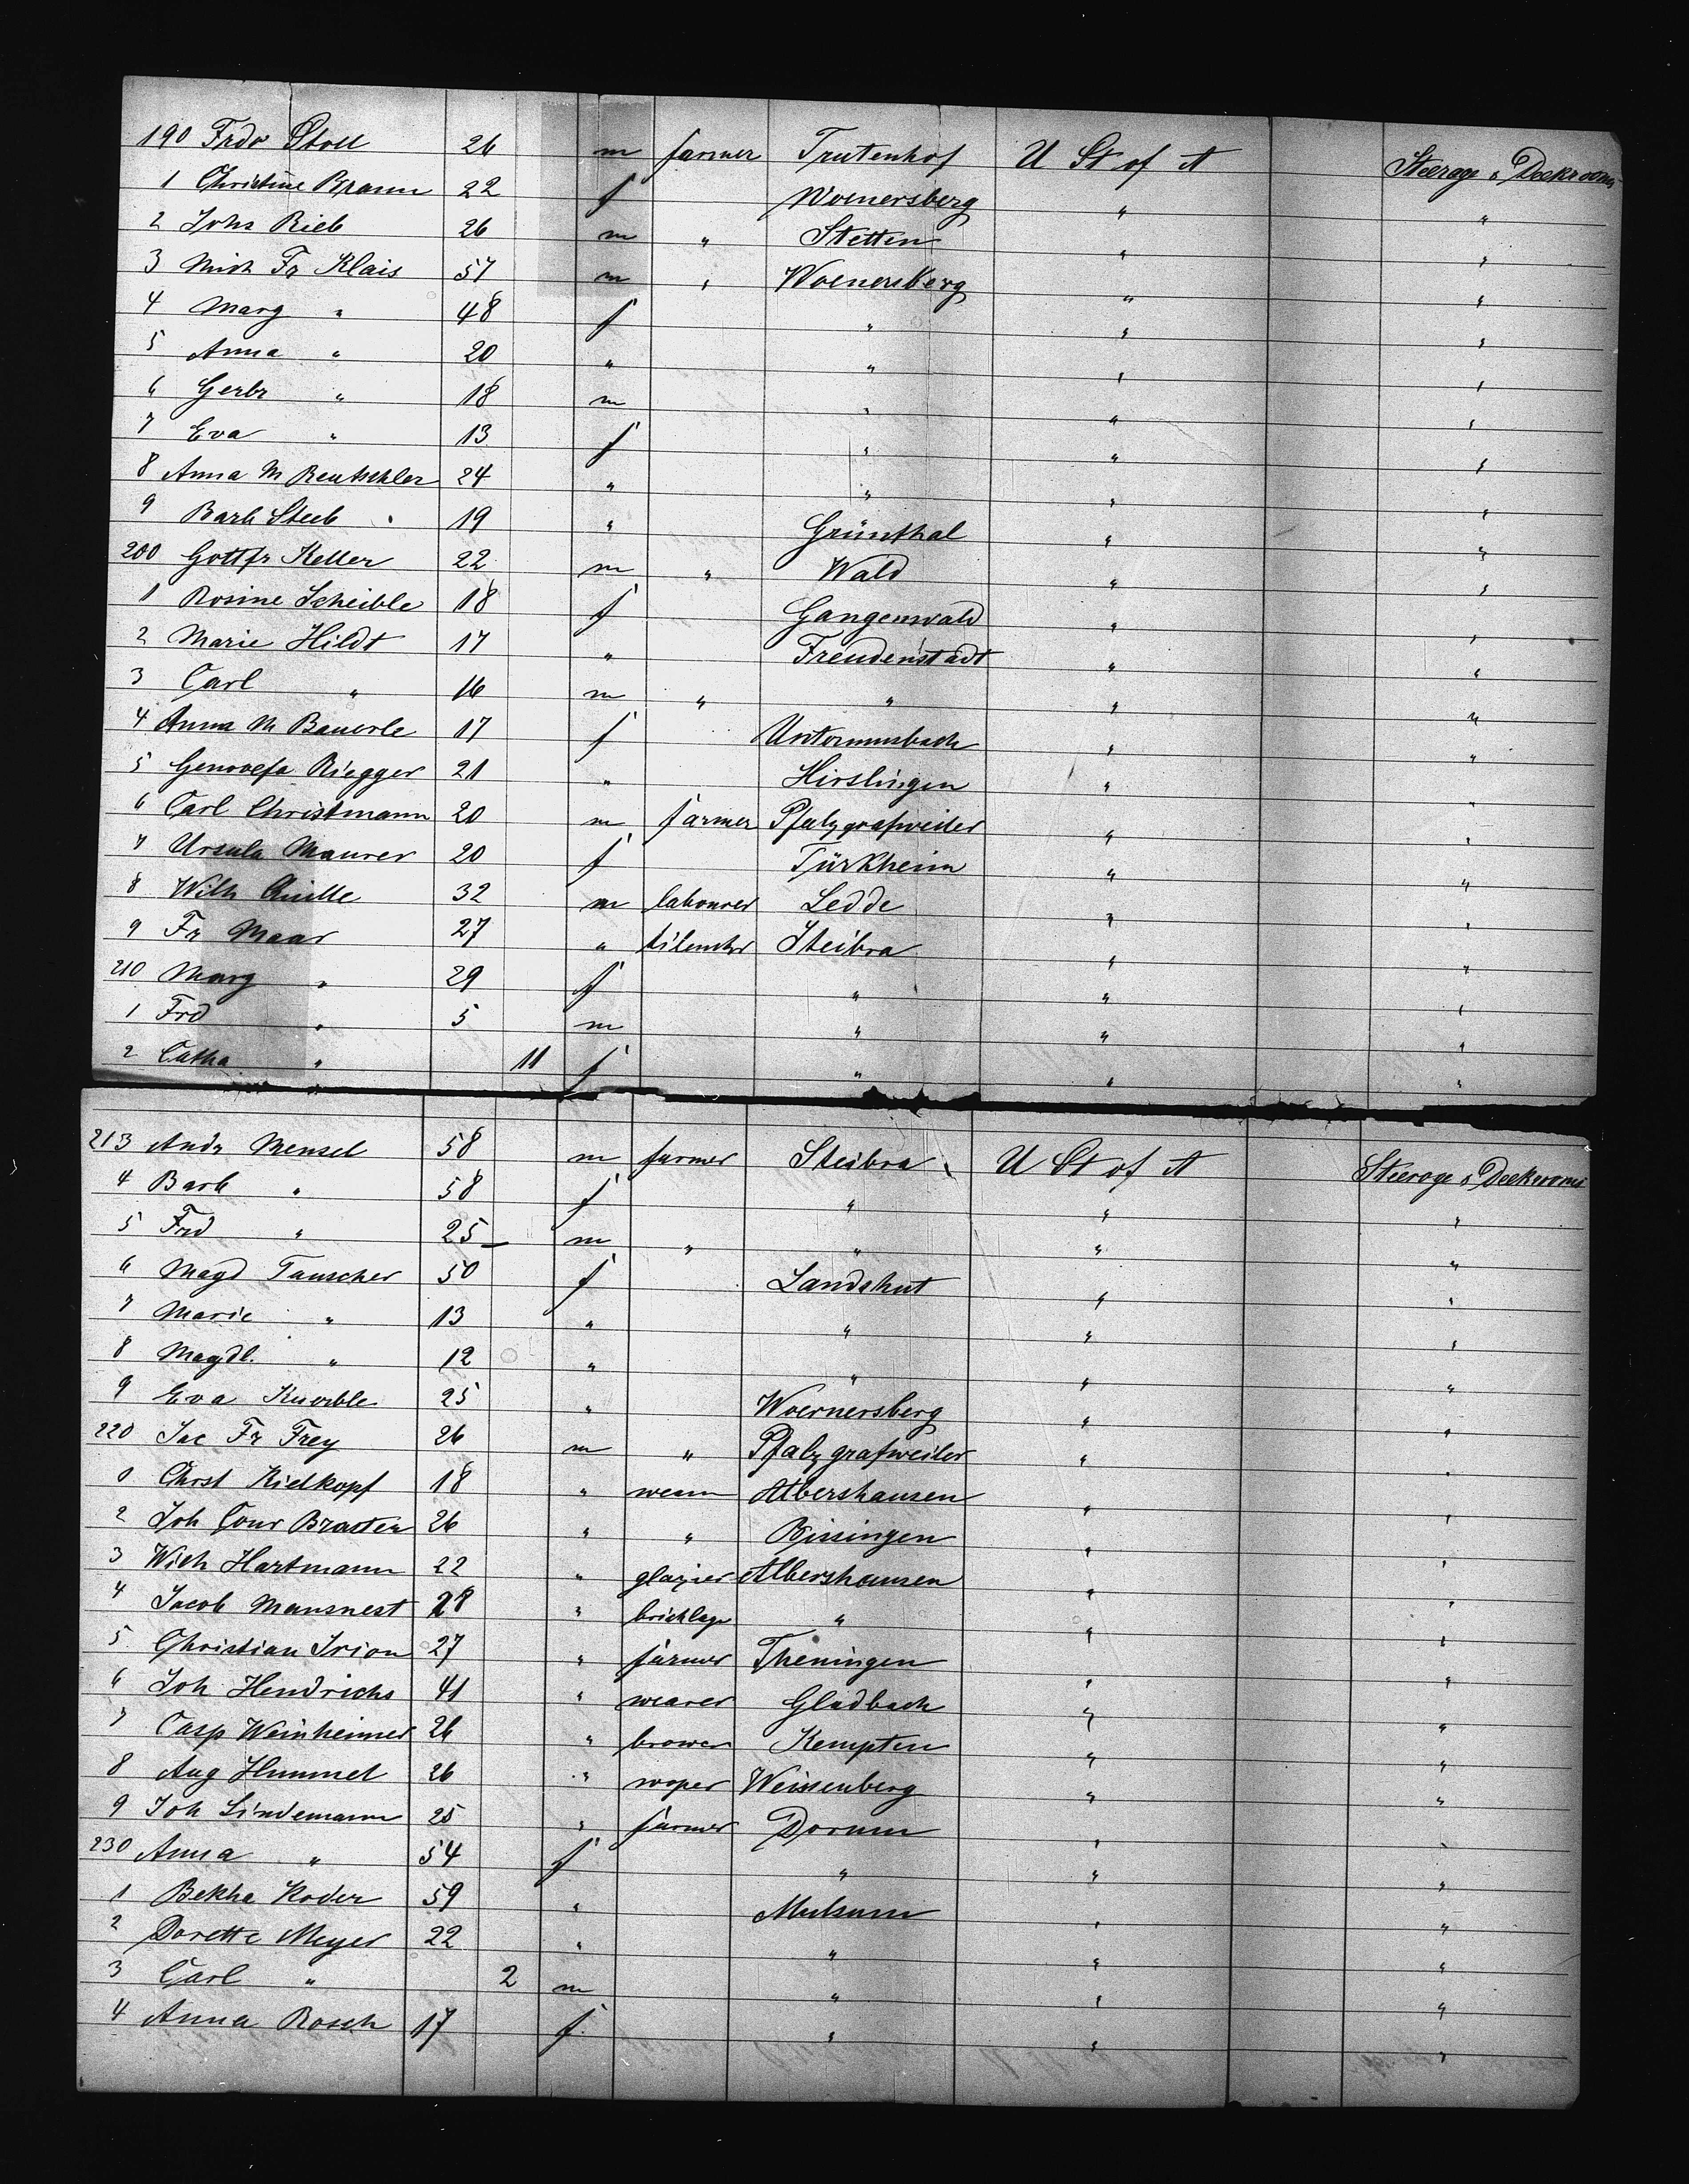 190 Frdr Stoll 26 m farmer Trutenhof U St of A Steerage & Deckrooms
1 Christine Braun 22 f Woenersberg " "
2 Johs Rieb 26 m " Stetten " "
3 Mich Fr Klais 57 m " Woenersberg " "
4 Marg " 48 f " " "
5 Anna " 20 " " " "
6 " 18 m " " "
7 Eva " 13 f " " "
8 Anna M Reutschler 24 " " " "
9 Barb Steeb 19 " Grünthal " "
200 Gottfr Keller 22 m " Wald " "
1 Rosine Scheible 18 f Gangenwald " "
2 Marie Hildt 17 " Freudenstadt " "
3 Carl " 16 m " " " "
4 Anna M Bauerle 17 f Untermusbach " "
5 Genovefa Riegger 21 " Hirslingen " "
6 Carl Christmann 20 m farmer Pfalzgrafweiler " "
7 Ursula Maurer 20 f Türkheim " "
8 Wilh 32 m labourer Ledde " "
9 Fr Maar 27 " Steibra " "
210 Marg " 29 f " " "
1 Frd " 5 m " " "
2 Catha " 11 f " " "
213 Andr Mensel 58 m farmer Steibra U St of A Steerage & Deckrooms
4 Barb " 58 f " " "
5 Frd " 25 m " " " "
6 Magd Tauscher 50 f Landshut " "
7 Marie " 13 " " " "
8 Magdl. " 12 " " " "
9 Eva Knorble 25 " Woernersberg " "
220 Jac Fr Frey 26 m " Pfalzgrafweiler " "
1 Chrst Kielkopf 18 " Albershausen " "
2 Joh Conr Brasten 26 " " Bissingen " "
3 Wilh Hartmann 22 " glazier Albershausen " "
4 Jacob Mausnest 28 " bricklayr " " "
5 Christian Irion 27 " farmer Theningen " "
6 Joh Hendrichs 41 " wearer Gladbach " "
7 Casp Weinheimer 26 " brower Kempten " "
8 Aug Hummel 26 " Weissenberg " "
9 Joh Lindemann 25 " farmer Dorum " "
230 Anna " 54 f " " "
1 Bekha Koder 59 " Mulsum " "
2 Dorette Meyer 22 " " " "
3 Carl " 2 m " " "
4 Anna Rosch 17 f " " "